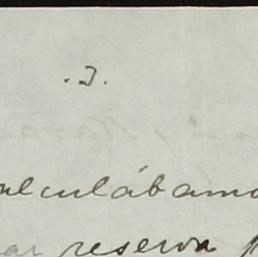 .3.
alculábamo
ar reserva p